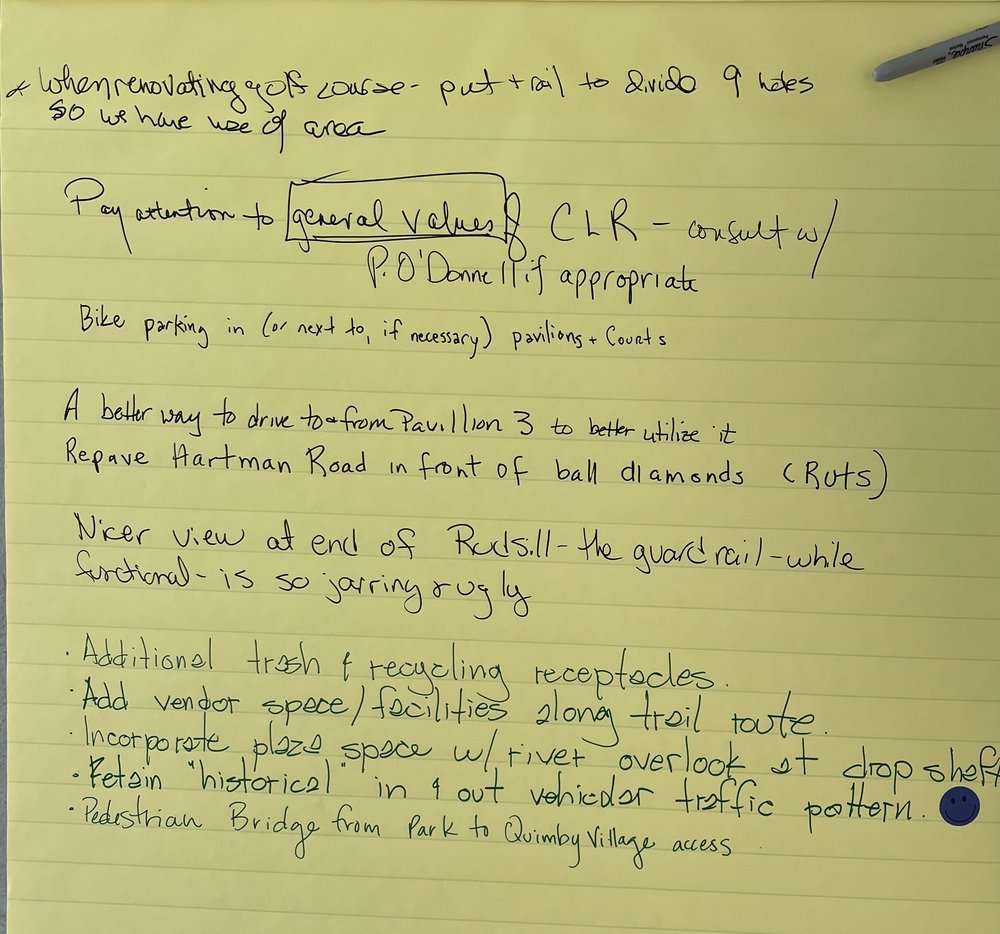 * when renovating golf course - put trail to divide 9 holes
so we have use of area
Pay attention to general values of CLR - consult w/
P. O'Donnell if appropriate
Bike parking in (or next to, if necessary) pavilions + Courts
A better way to drive to & from Pavillion 3 to better utilize it
Repave Hartman Road in front of ball diamonds (Ruts)
Nicer view at end of Rudsill - the guard rail - while
functional - is so jarring & ugly
· Additional trash & recycling receptacles.
· Add vendor space/facilities along trail route.
· Incorporate plaza space w/ river overlook at drop shaft
· Retain "historical" in & out vehicular traffic pattern.
· Pedestrian Bridge from Park to Quimby Village access
Sharpie